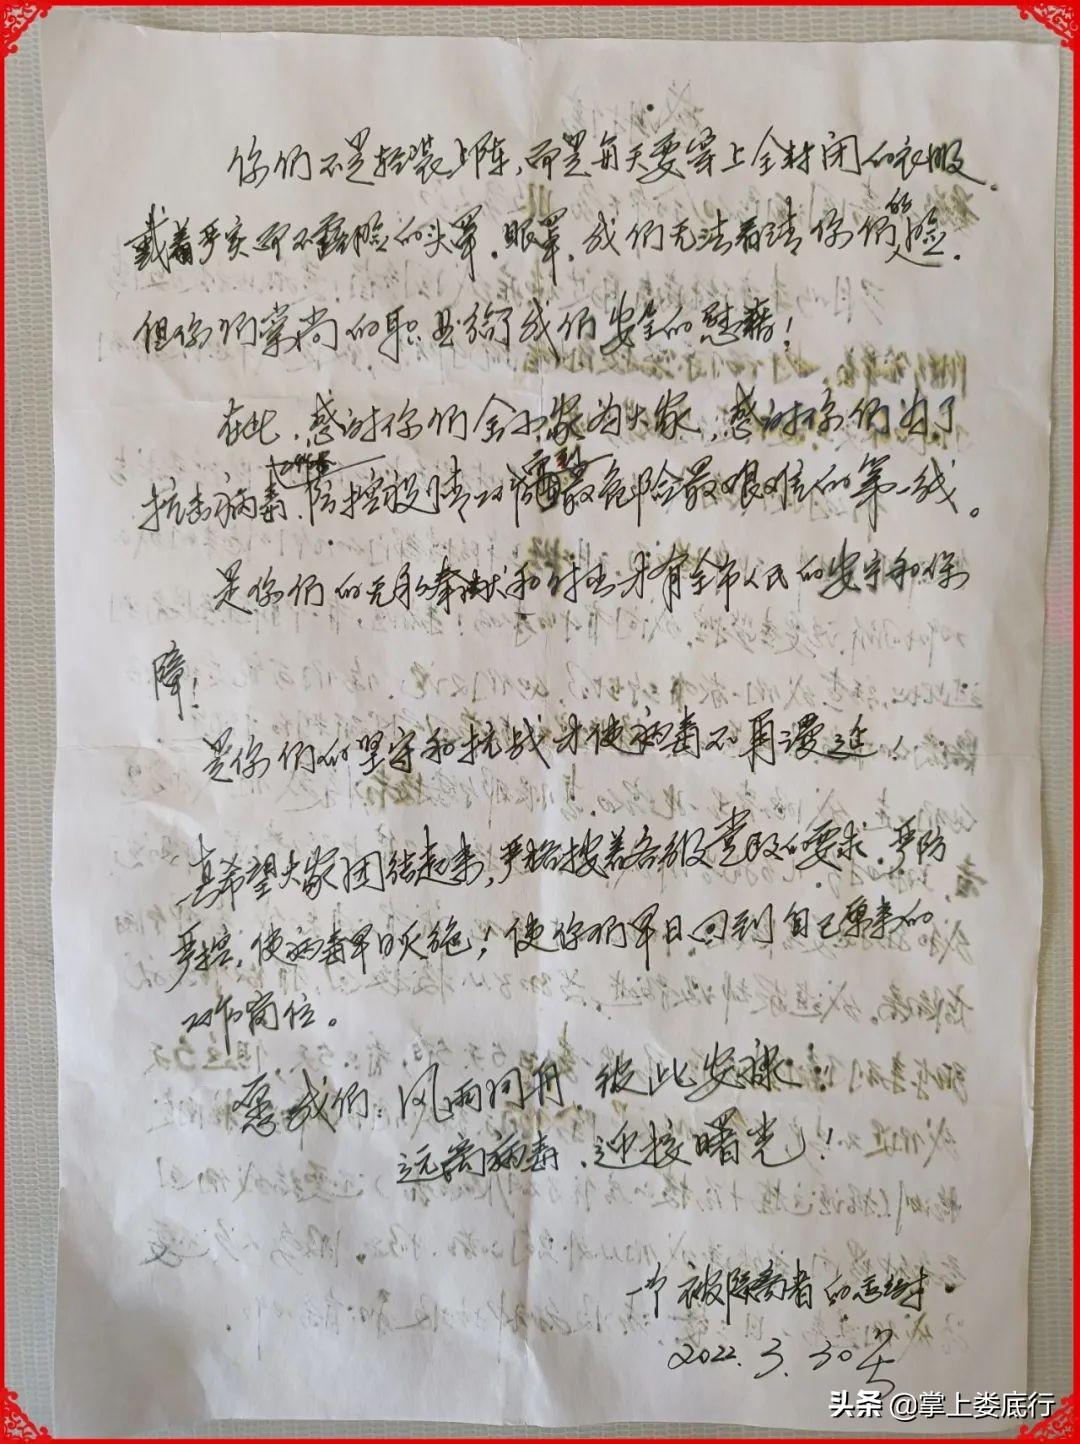 你们不是轻装上阵，而是每天要穿上全封闭的衣服、
戴着严实而不露脸的头罩、眼罩，我们无法看清你们的脸，
但你们崇尚的职业给了我们安全的慰藉！
在此，感谢你们舍小家为大家，感谢你们为了
抗击病毒、防控疫情攻最危险最艰难的第一线。
是你们的无私奉献和付出才有全市人民的安宁和保
障！
是你们的坚守和抗战才使病毒不再漫延！
真希望大家团结起来，严格按着各级党政的要求，严防
严控，使病毒早日灭绝！使你们早日回到自己原来的
工作岗位。
愿我们：风雨同舟 彼此安康！
远离病毒、迎接曙光！
一个被隔离者的感谢
2022.3.30
头条 @掌上娄底行